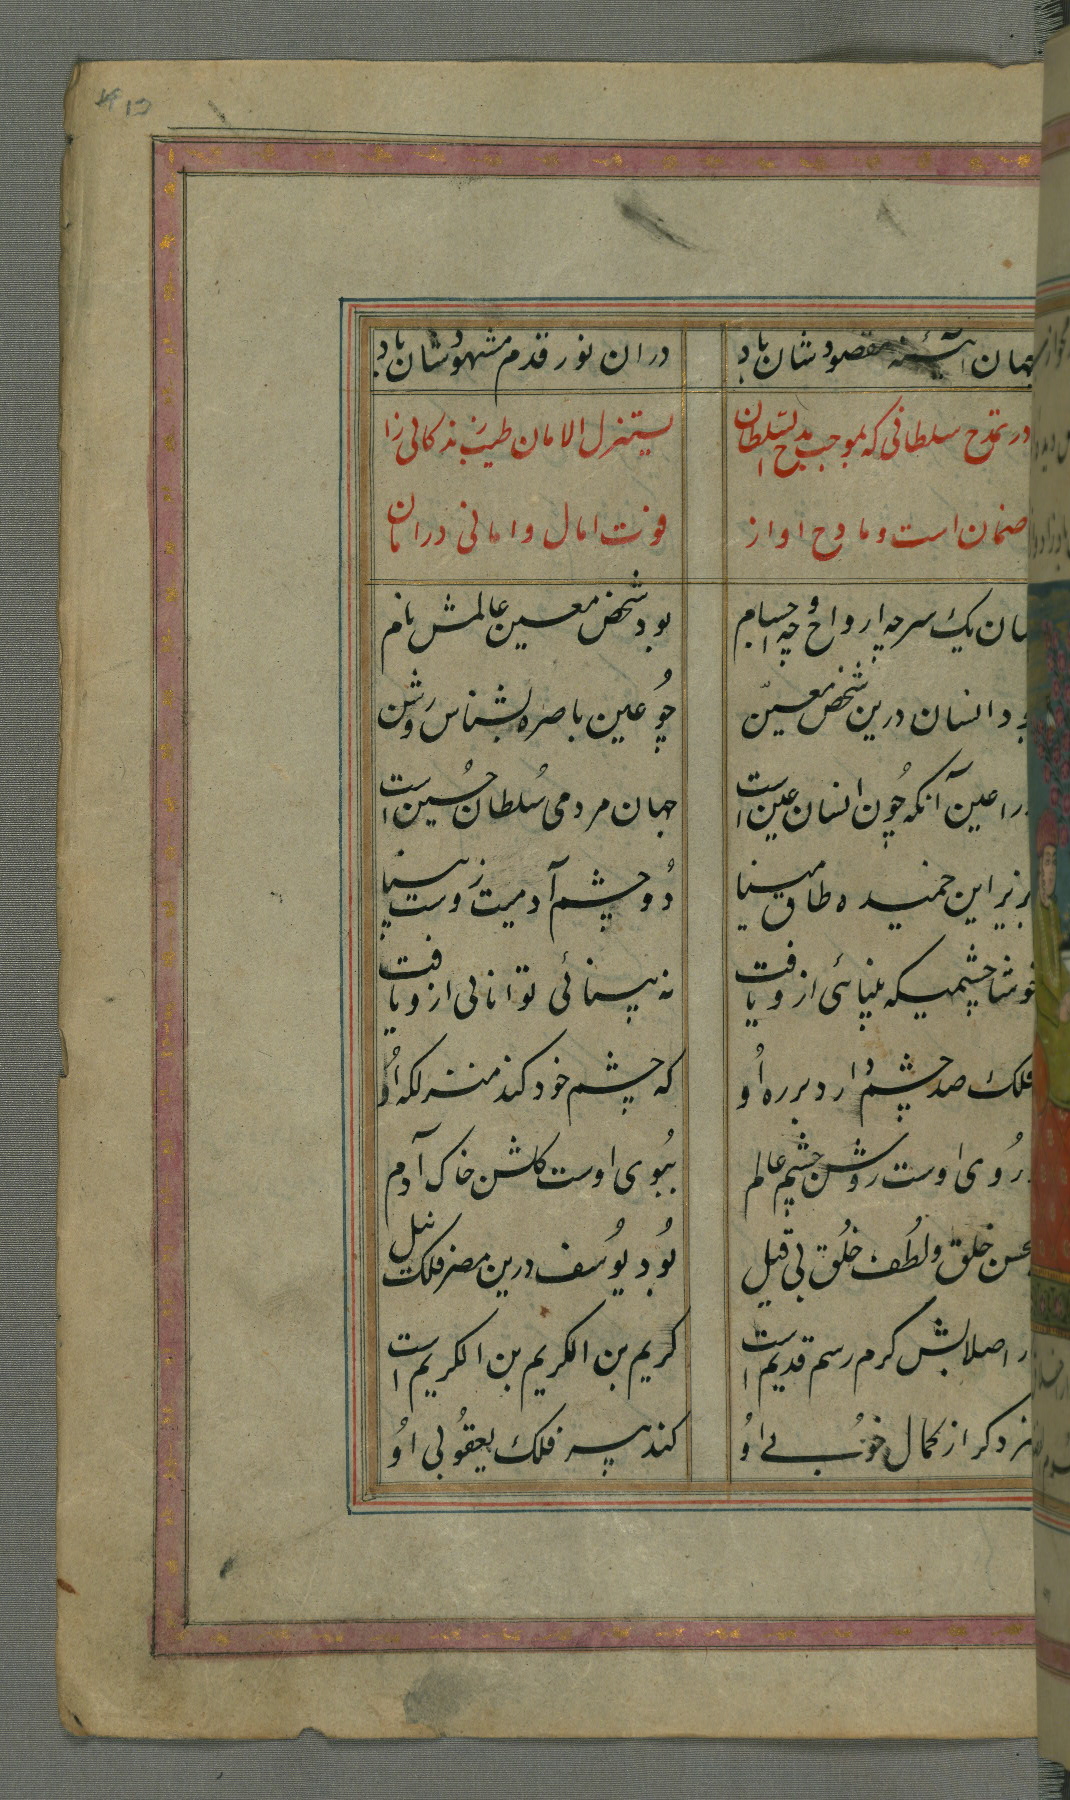 جهان آئینه مقصودشان باد در ان نور قدم مشهودشان باد
در تمدح سلطانی که بموجب مدح السلطان یستنزل الامان طیب
ضمان است و مادح او از فوت امال و امانی در امان
سان یک سر چه ارواح و چه اجسام بود شخص معین عالمش نام
بود انسان درین شخص معین چو عین باصره بشناس روشن
درا عین آنکه چون انسان عین است جهان مردمی سلطان حسین است
بزیر این خمیده طاق مینا دو چشم آدمیت زوست بینا
خوشا چشمیکه بینائی ازو یافت نه بینائی توانائی ازو یافت
فلک صد چشم دارد بر ره او که چشم خود کند منزلگه او
ز روی اوست روشن چشم عالم ببوی اوست گلشن خاک آدم
بحسن خلق و لطف خلق بی قیل بود یوسف درین مصر فلک نیل
در اصلابش کرم رسم قدیم است کریم بن الکریم بن الکریم است
نزد کر از کمال خوبی او کند پیر فلک یعقوبی او